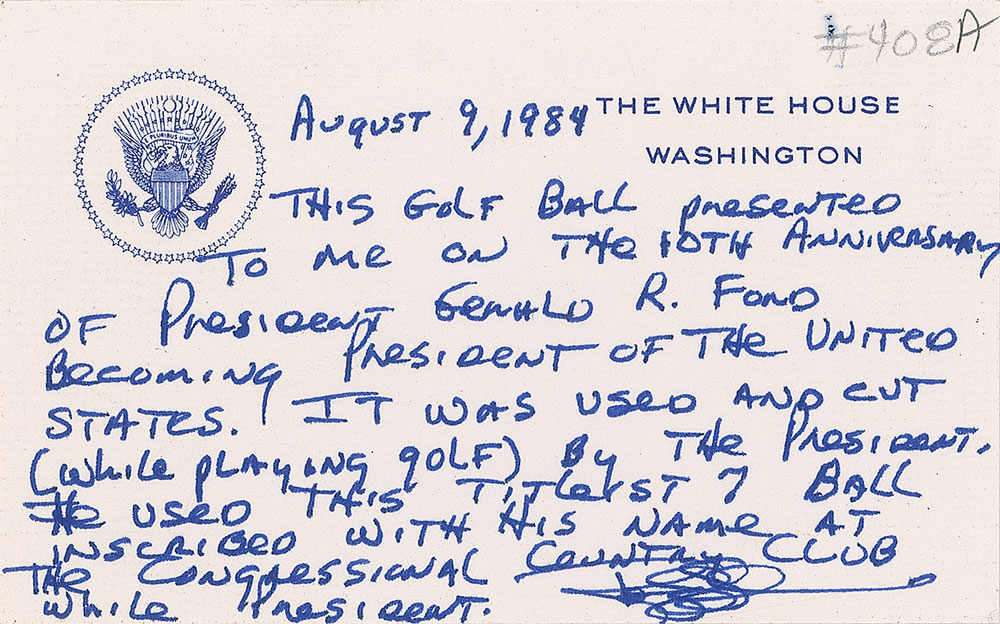 #408A
PLURIBUS UNUM
August 9, 1984 THE WHITE HOUSE
WASHINGTON
THIS GOLF BALL presented
TO me ON THE 10TH ANNIVERSARY
OF President GERALD R. FORD
Becoming President OF THE UNITED
STATES. IT WAS USED AND CUT
(while PLAYING GOLF) By THE President.
He USED THIS TITLEIST 7 BALL
INSCRIBED WITH HIS NAME AT
THE CONGRESSIONAL COUNTRY CLUB
while President.